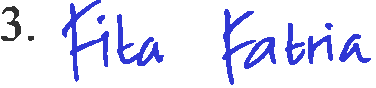 3. Fita Fatria